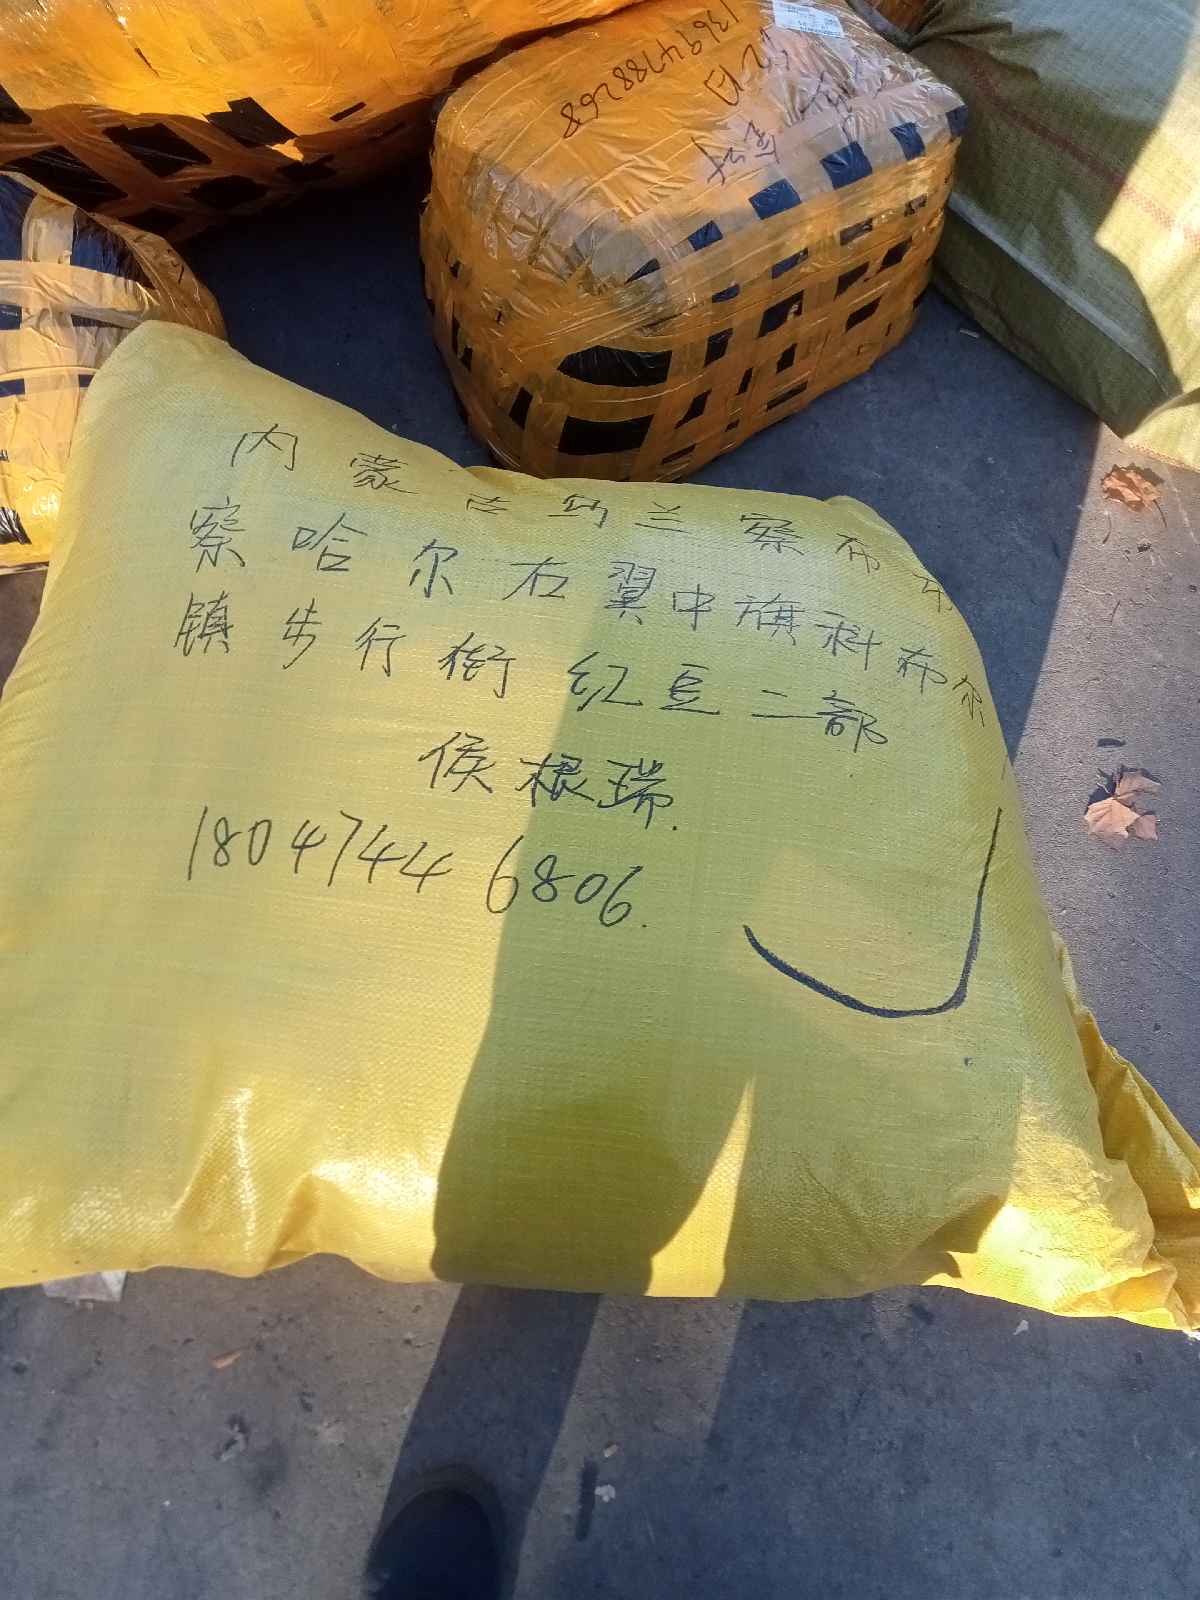 13694788268
内蒙古乌兰察布市
察哈尔右翼中旗科布尔
镇步行街红豆二部
侯根瑞.
18047446806.